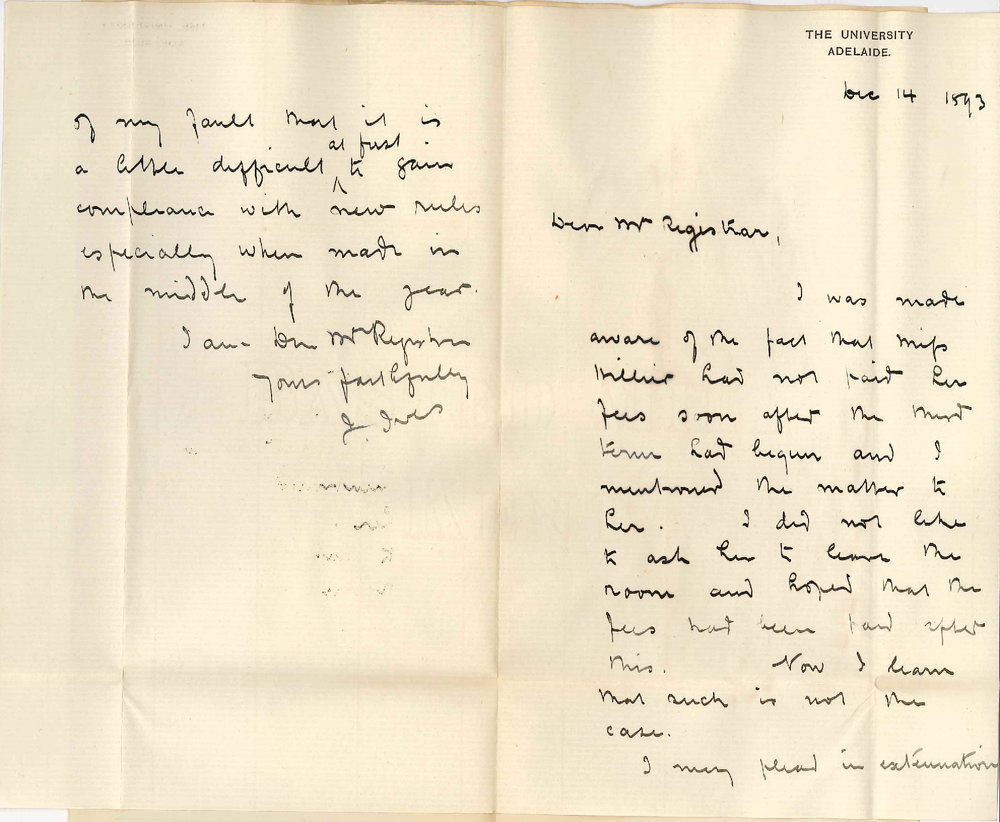 THE UNIVERSITY
ADELAIDE.
Dec 14 1893
Dear Mr Registrar,
I was made
aware of the fact that Miss
Hillier had not paid her
fees soon after the third
term had begun and I
mentioned the matter to
her. I did not like
to ask her to leave the
room and hoped that the
fees had been paid after
this. Now I learn
that such is not the
case.
I may plead in extenuation
of my fault that it is
a little difficult at first to gain
compliance with new rules
especially when made in
the middle of the year.
I am Dear Mr Registrar
Yours faithfully
J. Ives